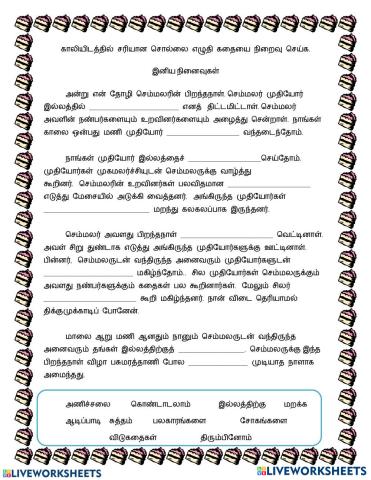 காலியிடத்தில் சரியான சொல்லை எழுதி கதையை நிறைவு செய்க.
இனிய நினைவுகள்
அன்று என் தோழி செம்மலரின் பிறந்தநாள். செம்மலர் முதியோர்
இல்லத்தில் ____________________ எனத் திட்டமிட்டாள். செம்மலர்
அவளின் நண்பர்களையும் உறவினர்களையும் அழைத்து சென்றாள். நாங்கள்
காலை ஒன்பது மணி முதியோர் ________________ வந்தடைந்தோம்.
நாங்கள் முதியோர் இல்லத்தைச் ________________செய்தோம்.
முதியோர்கள் முகமலர்ச்சியுடன் செம்மலருக்கு வாழ்த்து
கூறினர். செம்மலரின் உறவினர்கள் பலவிதமான ___________________
எடுத்து மேசையில் அடுக்கி வைத்தனர். அங்கிருந்த முதியோர்கள்
________________________ மறந்து கலகலப்பாக இருந்தனர்.
செம்மலர் அவளது பிறந்தநாள் _____________________ வெட்டினாள்.
அவள் சிறு துண்டாக எடுத்து அங்கிருந்த முதியோர்களுக்கு ஊட்டினாள்.
பின்னர், செம்மலருடன் வந்திருந்த அனைவரும் முதியோர்களுடன்
____________________ மகிழ்ந்தோம். சில முதியோர்கள் செம்மலருக்கும்
அவளது நண்பர்களுக்கும் கதைகள் பல கூறினார்கள். மேலும் சிலர்
_____________________ கூறி மகிழ்ந்தனர். நான் விடை தெரியாமல்
திக்குமுக்காடிப் போனேன்.
மாலை ஆறு மணி ஆனதும் நானும் செம்மலருடன் வந்திருந்த
அனைவரும் தங்கள் இல்லத்திற்குத் _______________. செம்மலருக்கு இந்த
பிறந்தநாள் விழா பசுமரத்தாணி போல _____________ முடியாத நாளாக
அமைந்தது.
அணிச்சலை கொண்டாடலாம் இல்லத்திற்கு மறக்க
ஆடிப்பாடி சுத்தம் பலகாரங்களை சோகங்களை
விடுகதைகள் திரும்பினோம்
LIVEWORKSHEETS LIVEWORKSHEETS